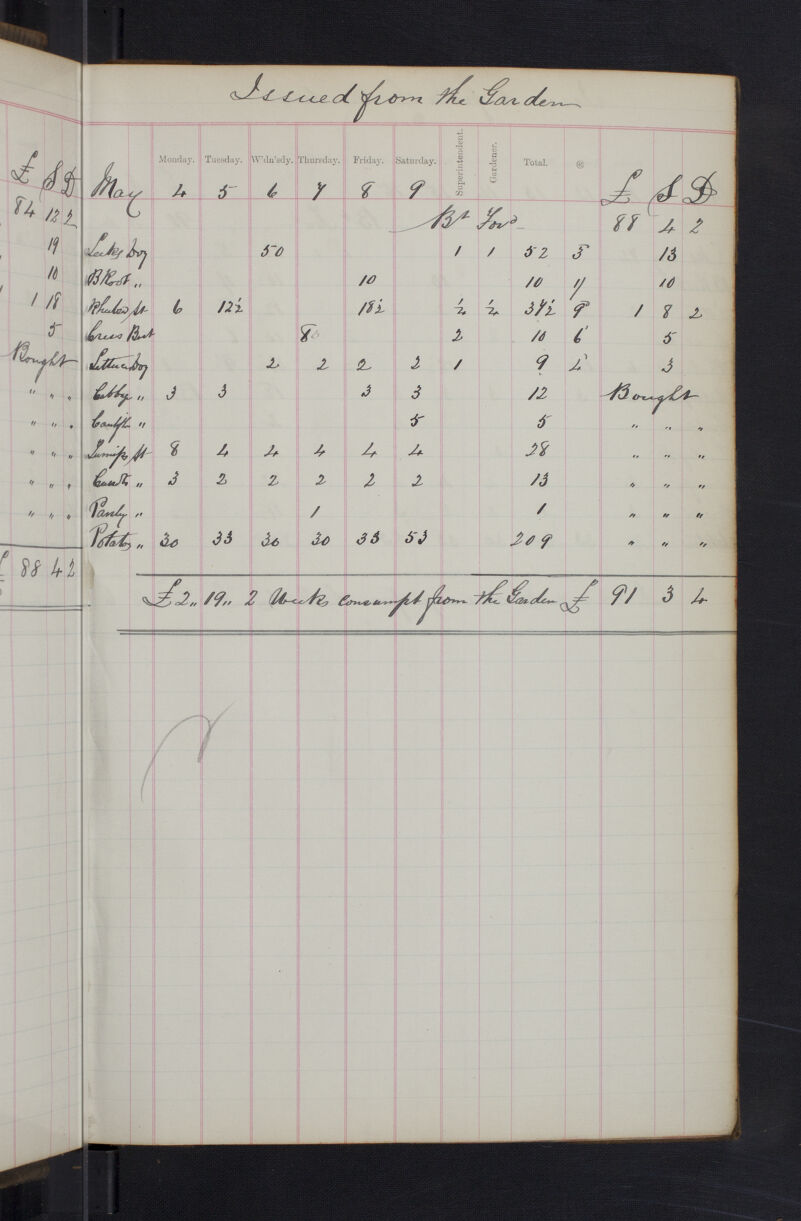 £ S D
84 12 2
19
10
1 18
5
Bought
" " "
" " "
" " "
" " "
" " "
£ 88 4 2
Issued from the Garden
Monday. Tuesday. W'dn'sdy. Thursday. Friday. Saturday. Superintendent. Gardener. Total. @
May 4 5 6 7 8 9 £ S D
Bt Ford 88 4 2
Leeks Doz 50 1 1 52 3 13
B Root " 10 10 1/ 10
Rhubarb St 6 12½ 18½ ¼ ¼ 37½ 9 1 8 2
Cress Bskt 8 2 10 6 5
Lettuce Doz 2 2 2 2 1 9 4 3
Cabbge " 3 3 3 3 12 Bought
Caulifl " 5 5 " " "
Turnips St 8 4 4 4 4 4 28 " " "
Carrots " 3 2 2 2 2 2 13 " " "
Parsley " 1 1 " " "
Potatoes " 30 33 30 30 33 53 209 " " "
£2 " 19 " 2 Weeks consumpt from the Garden £ 91 3 4